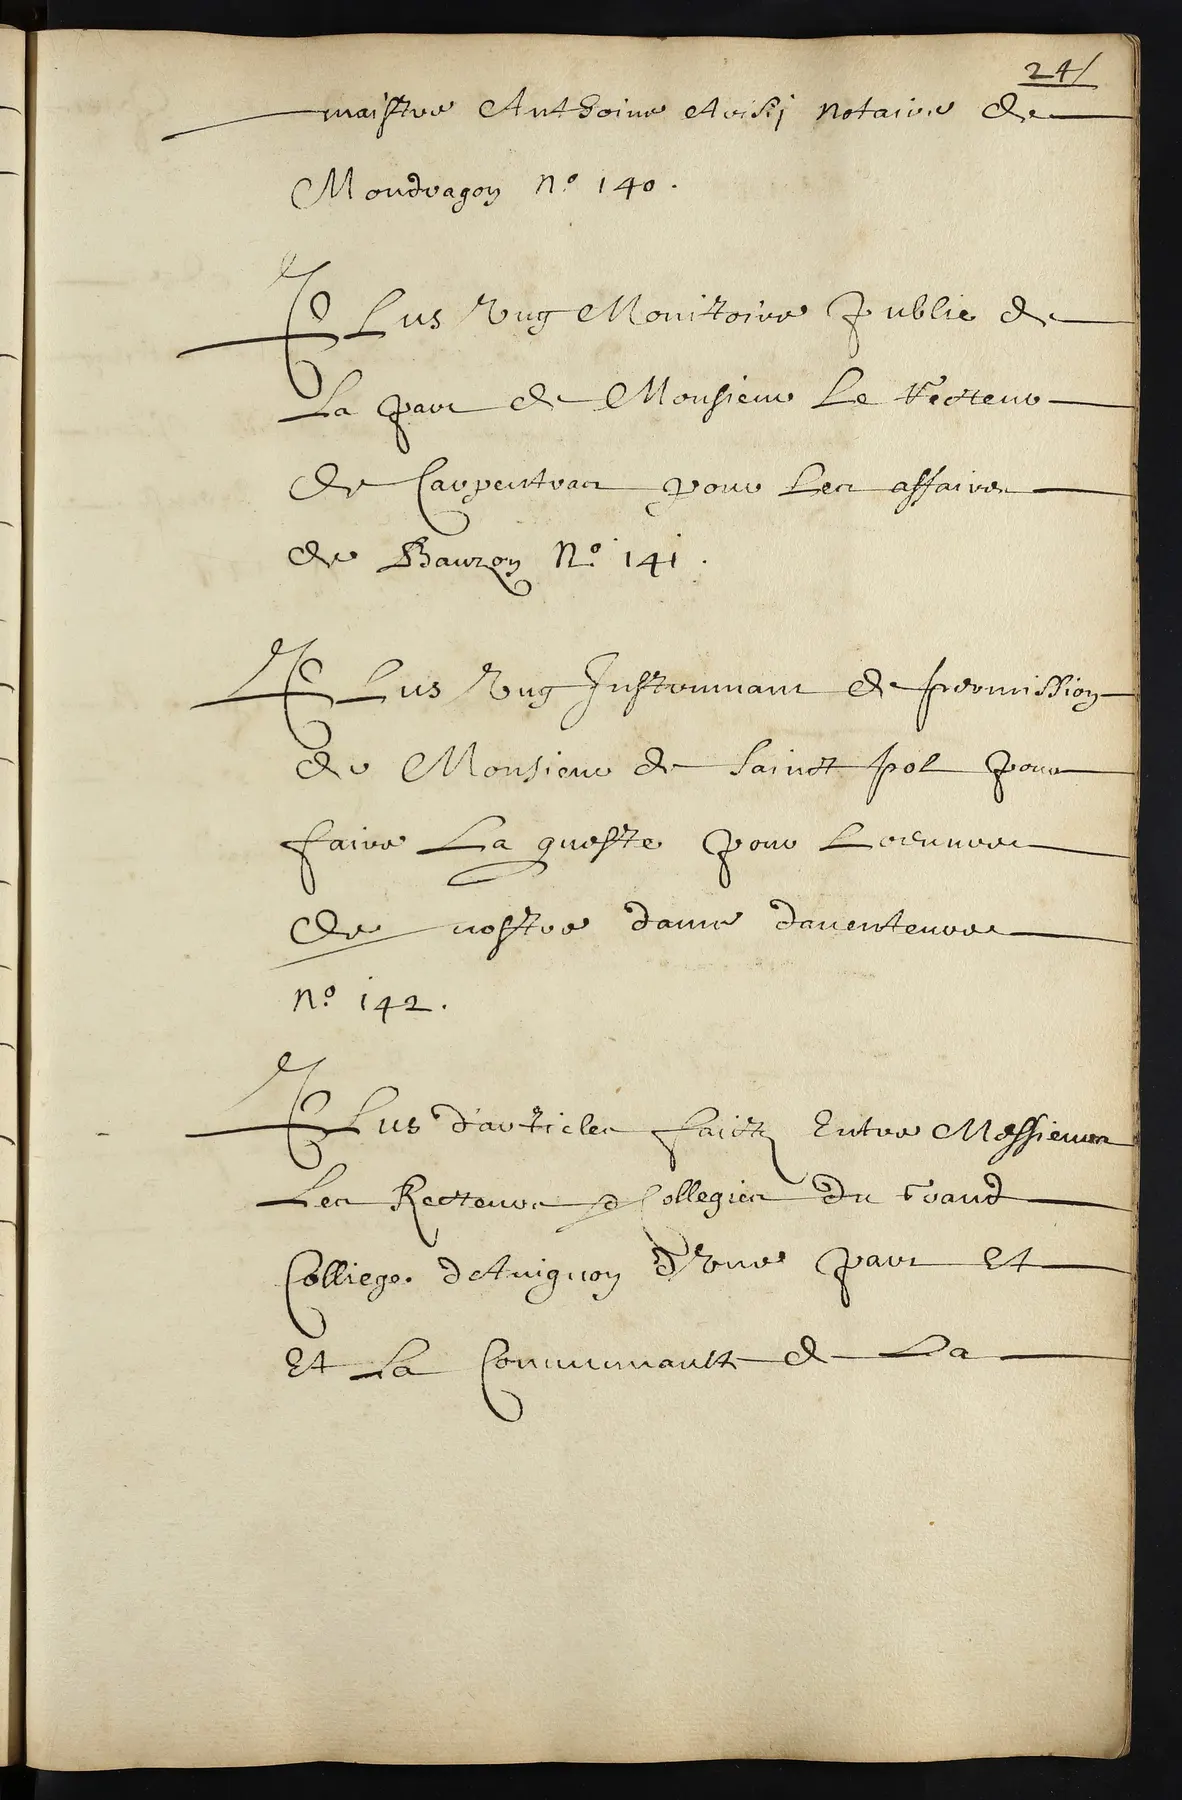 24/
maistre Anthoine Arisij notaire de
Mondragon n.º 140.
Plus vng Monitoire publie de
La part de Monsieur Le Recteur
de Carpentras pour Les affaires
de Bauzon N.º 141.
Plus vng Instrumant de permission
de Monsieur de Sainct pol pour
faire La queste pour Loeuure
de nostre dame dauenteure
n.º 142.
Plus d'articles faictz Entre Messieurs
Les Recteurs & Collegies du Grand
College dAuignon d'vne part Et
Et La Communaulte de La